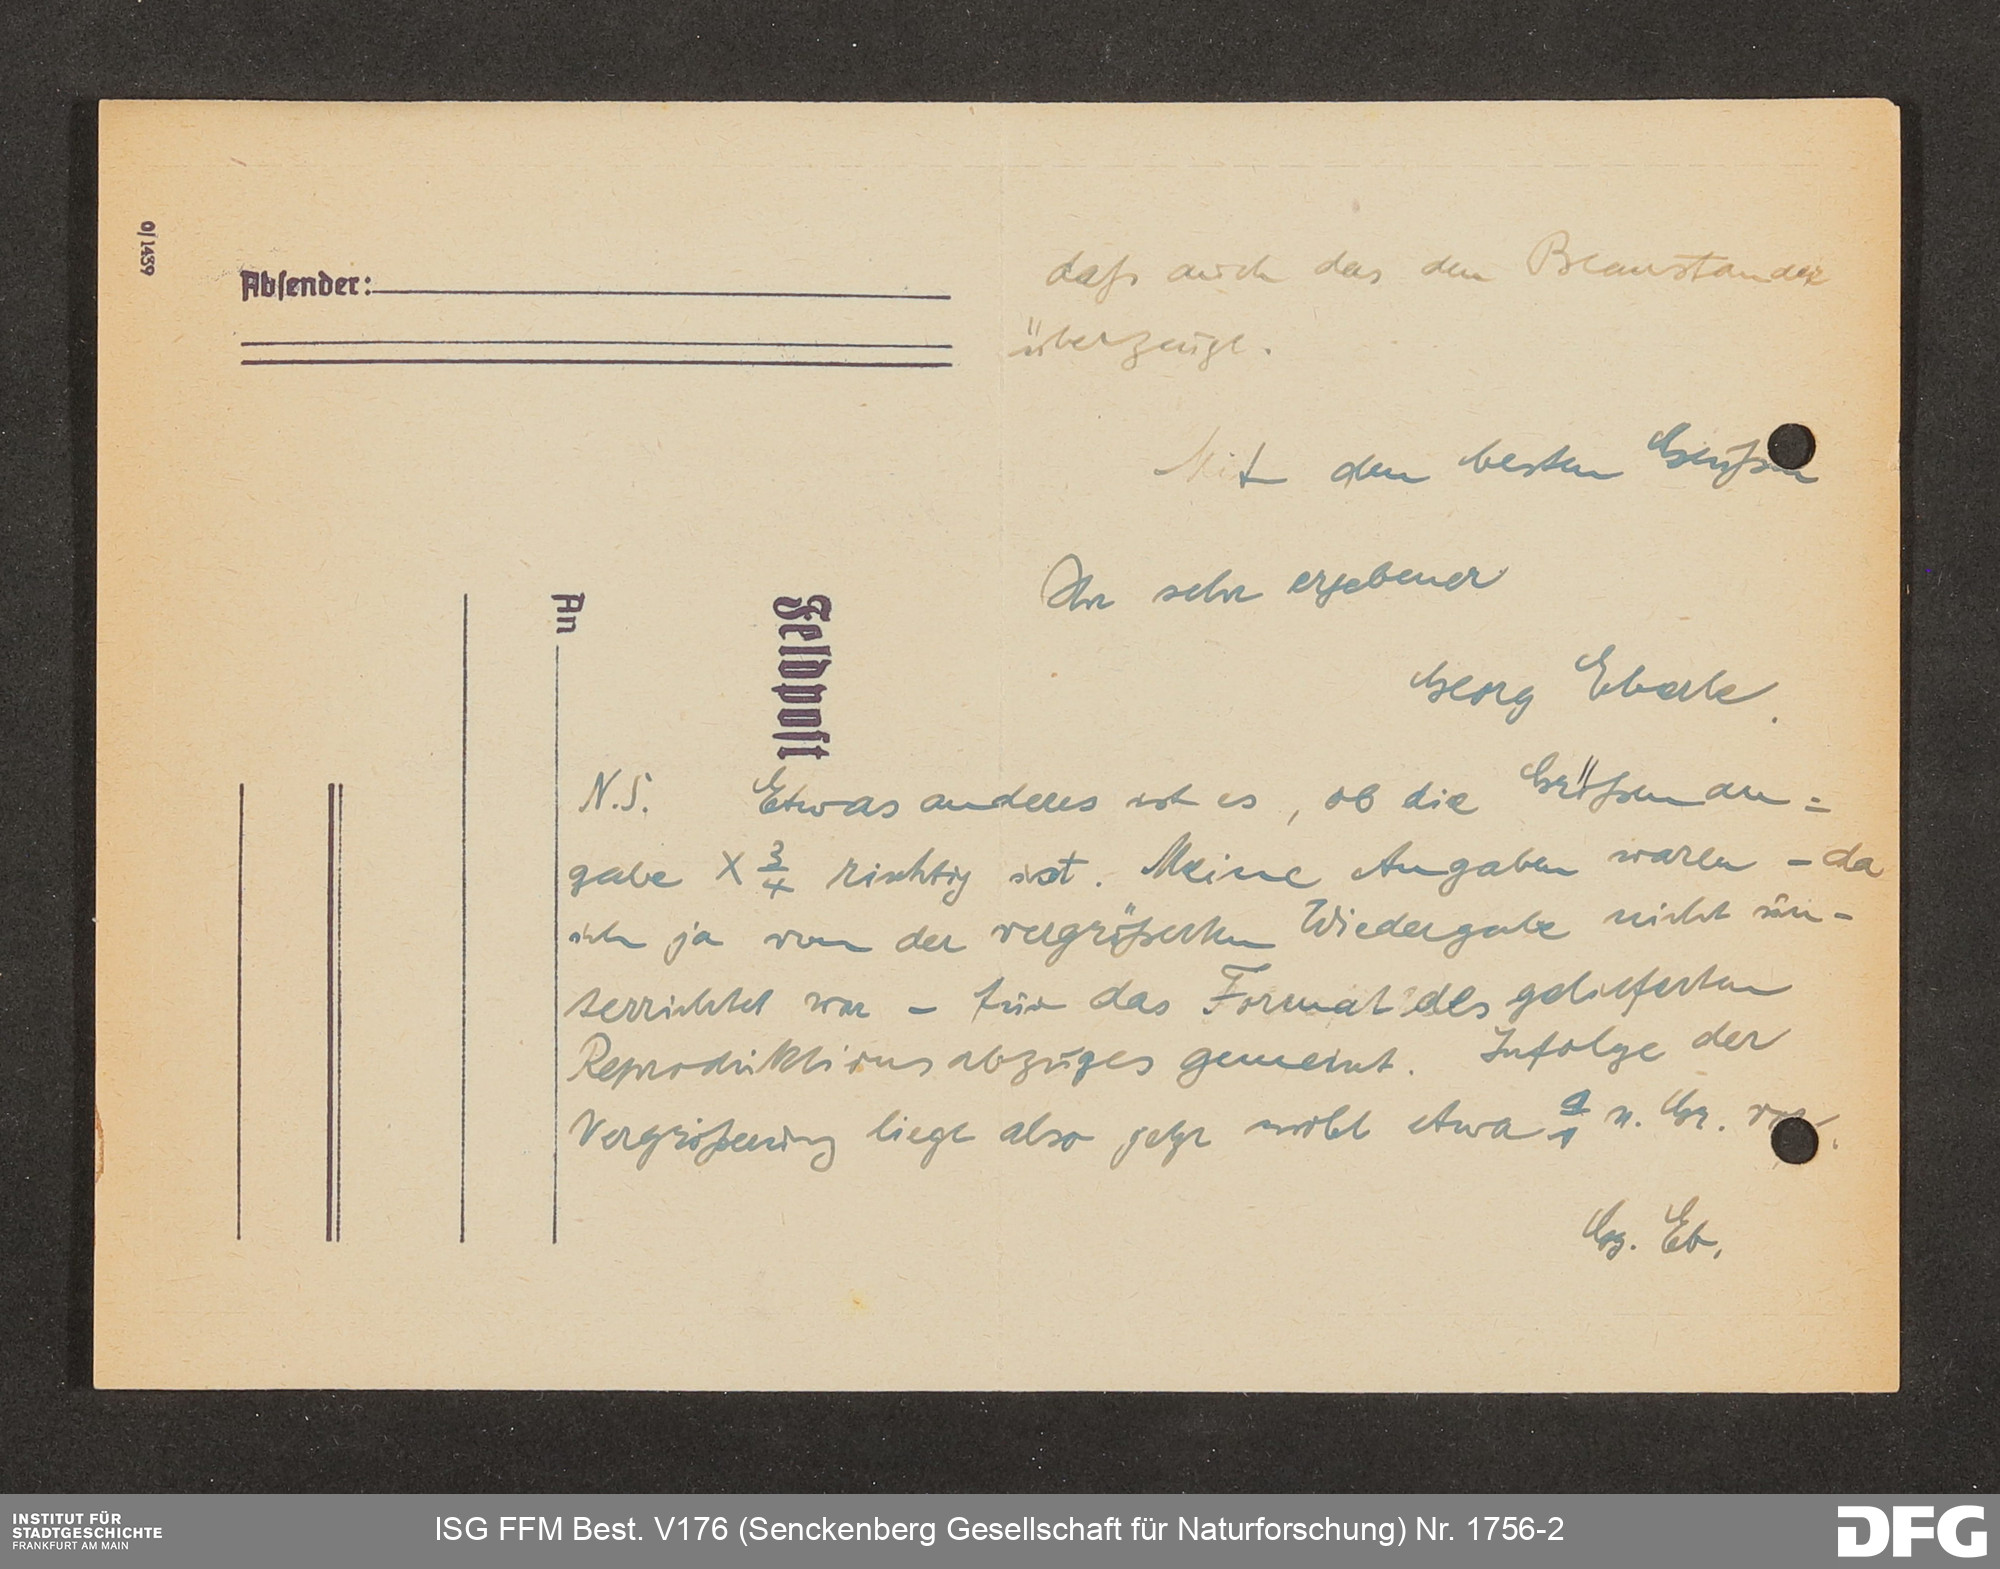 0/1439
Absender:
An
Feldpost
daß auch das den Beanstander
überzeugt.
Mit den besten Grüßen
Ihr sehr ergebener
Georg Eberle.
N.S. Etwas anderes ist es, ob die Größenan=
gabe X 3/4 richtig ist. Meine Angaben waren – da
ich ja von der vergrößerten Wiedergabe nicht un-
terrichtet war – für das Format des gelieferten
Reproduktionsabzuges gemeint. Infolge der
Vergrößerung liegt also jetzt wohl etwa n. Gr. vor.
Gg. Eb.
INSTITUT FÜR
STADTGESCHICHTE
FRANKFURT AM MAIN
ISG FFM Best. V176 (Senckenberg Gesellschaft für Naturforschung) Nr. 1756-2
DFG